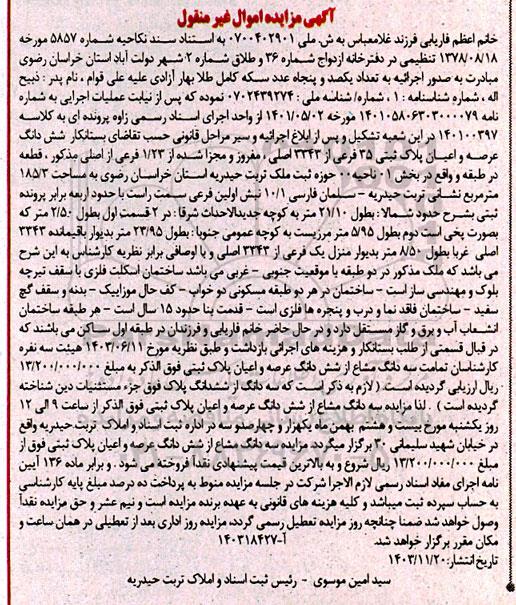 آگهی مزایده اموال غیر منقول
خانم اعظم فاریابی فرزند غلامعباس به ش. ملی ۰۷۰۰۴۰۲۹۰۱ به استناد سند نکاحیه شماره ۵۸۵۷ مورخه
۱۳۷۸/۰۸/۱۸ تنظیمی در دفترخانه ازدواج شماره ۳۶ و طلاق شماره ۲ شهر دولت آباد استان خراسان رضوی
مبادرت به صدور اجرائیه به تعداد یکصد و پنجاه عدد سکه کامل طلا بهار آزادی علیه علی قوام ، نام پدر : ذبیح
اله ، شماره شناسنامه : ۱ ، شماره/ شناسه ملی : ۰۷۰۲۴۳۹۲۷۴ نموده که پس از نیابت عملیات اجرایی به شماره
نامه ۱۴۰۱۰۵۸۰۶۳۰۳۰۰۰۰۷۹ از واحد اجرای اسناد رسمی زاوه پرونده ای به کلاسه
۱۴۰۱۰۰۳۹۷ در این شعبه تشکیل و پس از ابلاغ اجرائیه و سیر مراحل قانونی حسب تقاضای بستانکار شش دانگ
عرصه و اعیان پلاک ثبتی ۳۵ فرعی از ۳۳۴۳ اصلی ، مفروز و مجزا شده از ۱/۲۳ فرعی از اصلی مذکور ، قطعه
در طبقه و واقع در بخش ۰۱ ناحیه ۰۰ حوزه ثبت ملک تربت حیدریه استان خراسان رضوی به مساحت ۱۸۵/۳
مترمربع نشانی تربت حیدریه - سلمان فارسی ۱۰/۱ نبش اولین فرعی سمت راست با حدود اربعه برابر پرونده
ثبتی بشرح حدود شمالا : بطول ۲۱/۱۰ متر به کوچه جدیدالاحداث شرقا : در ۲ قسمت اول بطول ۲/۵۰ متر که
بصورت پخی است دوم بطول ۵/۹۵ متر مرزیست به کوچه عمومی جنوبا : بطول ۲۳/۹۵ متر بدیوار باقیمانده ۳۳۴۳
اصلی غربا بطول ۸/۵۰ متر بدیوار منزل یک فرعی از ۳۳۴۳ اصلی و با اوصافی برابر نظریه کارشناس به این شرح
می باشد که ملک مذکور در دو طبقه با موقعیت جنوبی - غربی می باشد ساختمان اسکلت فلزی با سقف تیرچه
بلوک و مهندسی ساز است - ساختمان در هر دو طبقه مسکونی دو خواب - کف حال موزاییک - بدنه و سقف گچ
سفید - ساختمان فاقد نما و درب و پنجره ها فلزی است - قدمت بنا حدود ۱۵ سال است - هر طبقه ساختمان
انشعاب آب و برق و گاز مستقل دارد و در حال حاضر خانم فاریابی و فرزندان در طبقه اول ساکن می باشند که
در قبال قسمتی از طلب بستانکار و هزینه های اجرائی بازداشت و طبق نظریه مورخ ۱۴۰۳/۰۶/۱۱ هیئت سه نفره
کارشناسان تمامت سه دانگ مشاع از شش دانگ عرصه و اعیان پلاک ثبتی فوق الذکر به مبلغ ۱۳/۲۰۰/۰۰۰/۰۰۰
ریال ارزیابی گردیده است ( لازم به ذکر است که سه دانگ از ششدانگ پلاک فوق جزء مستثنیات دین شناخته
گردیده است ) . لذا مزایده سه دانگ مشاع از شش دانگ عرصه و اعیان پلاک ثبتی فوق الذکر از ساعت ۹ الی ۱۲
روز یکشنبه مورخ بیست و هشتم بهمن ماه یکهزار و چهارصدو سه در اداره ثبت اسناد و املاک تربت حیدریه واقع
در خیابان شهید سلیمانی ۳۰ برگزار میگردد. مزایده سه دانگ مشاع از شش دانگ عرصه و اعیان پلاک ثبتی فوق از
مبلغ ۱۳/۲۰۰/۰۰۰/۰۰۰ ریال شروع و به بالاترین قیمت پیشنهادی نقداً فروخته می شود . و برابر ماده ۱۳۶ آیین
نامه اجرای مفاد اسناد رسمی لازم الاجرا شرکت در جلسه مزایده منوط به پرداخت ده درصد مبلغ پایه کارشناسی
به حساب سپرده ثبت میباشد و کلیه هزینه های قانونی به عهده برنده مزایده است و نیم عشر و حق مزایده نقداً
وصول خواهد شد ضمنا چنانچه روز مزایده تعطیل رسمی گردد، مزایده روز اداری بعد از تعطیلی در همان ساعت و
مکان مقرر برگزار خواهد شد. آ-۱۴۰۳۱۸۴۲۷
تاریخ انتشار: ۱۴۰۳/۱۱/۲۰
سید امین موسوی - رئیس ثبت اسناد و املاک تربت حیدریه